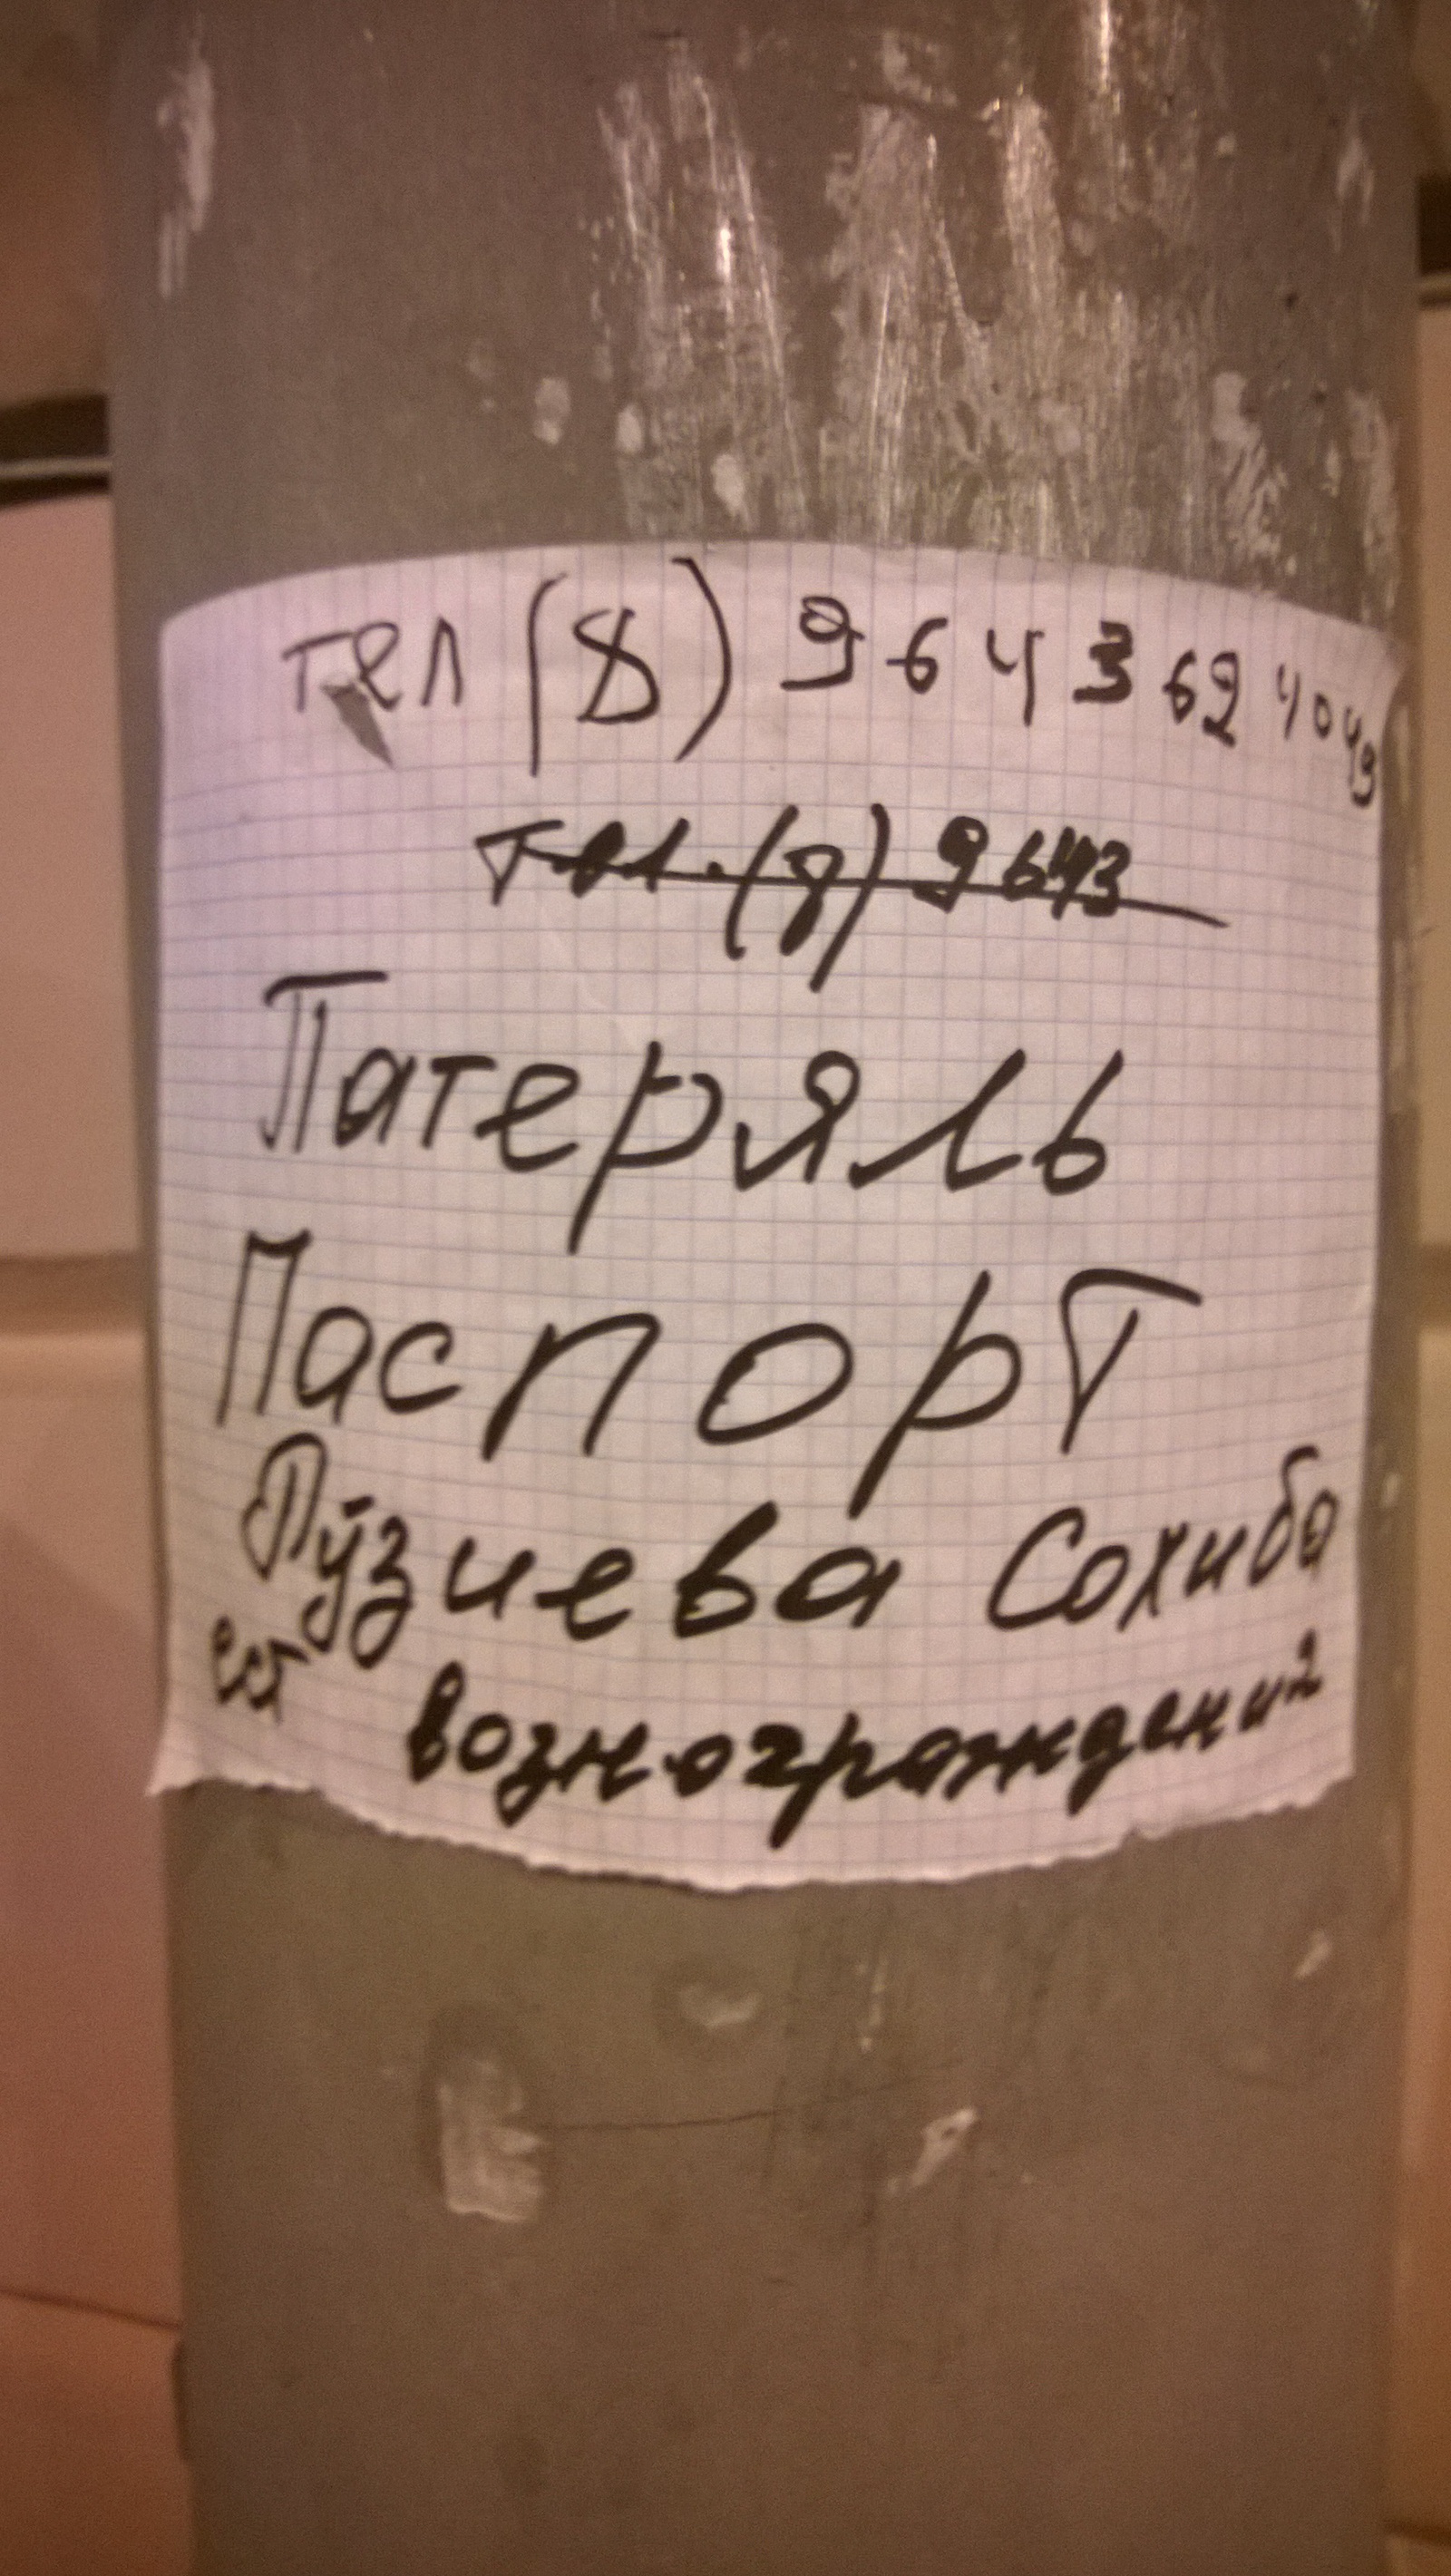 тел (8) 964 3 62 4049
тел. (8) 9643
Патеряль
Паспорт
Рӯзиева Сохиба
ест вознограждени